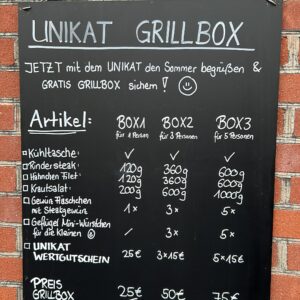 UNIKAT GRILLBOX
JETZT mit dem UNIKAT den Sommer begrüßen &
GRATIS GRILLBOX sichern!
Artikel: BOX1 BOX2 BOX3
für 1 Person für 3 Personen für 5 Personen
Kühltasche ✓ ✓ ✓
Rindersteak 120g 360g 600g
Hähnchen Filet 120g 360g 600g
Krautsalat 200g 600g 1000g
Gewürz Fläschchen
mit Steakgewürz 1x 3x 5x
Geflügel Mini-Würstchen
für die Kleinen ✓ 3x 5x
UNIKAT
WERTGUTSCHEIN 25€ 3x15€ 5x15€
PREIS
GRILLBOX 25€ 50€ 75€